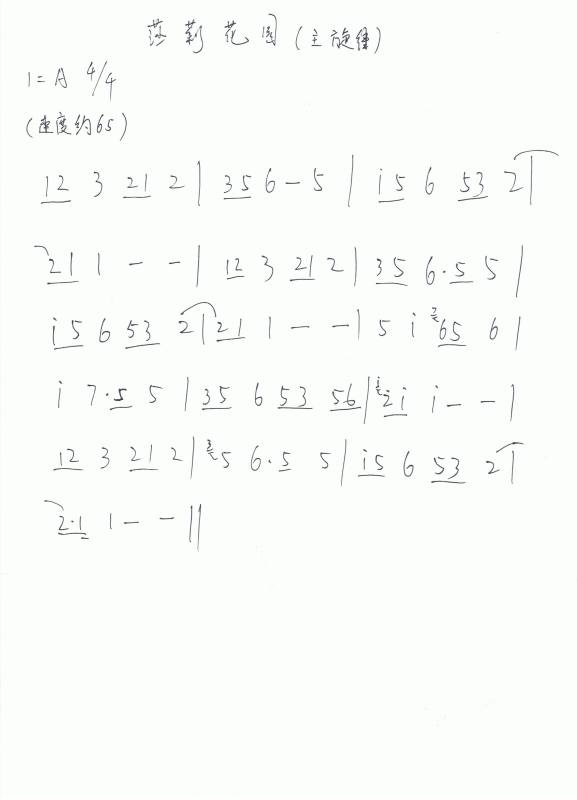 莎莉花园(主旋律)
1=A 4/4
(速度约65)
12 3 21 2 | 35 6 - 5 | i5 6 53 2 |
21 1 - - | 12 3 21 2 | 35 6·5 5 |
i5 6 53 2 | 21 1 - - | 5 i 65 6 |
i 7·5 5 | 35 6 53 56 | 2i i - - |
12 3 21 2 | 3 5 6·5 5 | i5 6 53 2 |
2·1 1 - - ||